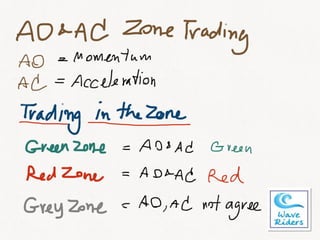 AO & AC Zone Trading
AO = Momentum
AC = Acceleration
Trading in the Zone
Green Zone = AO & AC Green
Red Zone = AO & AC Red
Grey Zone = AO, AC not agree
Wave
Riders